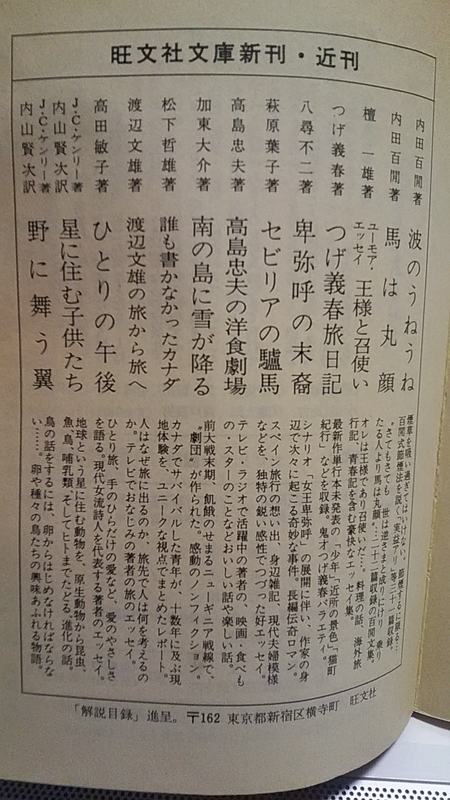 旺文社文庫新刊・近刊
内田百閒著
波のうねうね
内田百閒著
馬は丸顔
檀一雄著
ユーモア・エッセイ
王様と召使い
つげ義春著
つげ義春旅日記
八尋不二著
卑弥呼の末裔
萩原葉子著
セビリアの驢馬
高島忠夫著
高島忠夫の洋食劇場
加東大介著
南の島に雪が降る
松下哲雄著
誰も書かなかったカナダ
渡辺文雄著
渡辺文雄の旅から旅へ
高田敏子著
ひとりの午後
J・C・ゲンリー著
内山賢次訳
星に住む子供たち
J・C・ゲンリー著
内山賢次訳
野に舞う翼
煙草を吸い過ぎてはいけない、
百閒式節煙法を説く「実益アリ」
〝さてもさても 世は逆さまと成りにけり 乗りたる人より馬は丸顔〟
オレは王様であり召使いだ…。料理の話、海外旅行記、青春記を含む豪快なエッセイ集。
最新作単行本未発表の「少年」「近所の景色」「猫町紀行」などを収録。鬼才つげ義春バラエティ。
シナリオ「女王卑弥呼」の展開に伴い、作家の身辺で次々に起こる奇妙な事件。長編伝奇ロマン。
スペイン旅行の想い出、身辺雑記、現代夫婦模様などを、独特の鋭い感性でつづった好エッセイ。
テレビ・ラジオで活躍中の著者の、映画・食べもの・スターのことなどおいしい話や楽しい話。
前大戦末期、飢餓のせまるニューギニア戦線で、〝劇団〟が作られた。感動のノンフィクション。
カナダでサバイバルした青年が、十数年に及ぶ現地体験を、ユニークな視点でまとめたレポート。
人はなぜ旅に出るのか、旅先で人は何を考えるのか。テレビでおなじみの著者の旅のエッセイ。
ひとり旅、手のひらだけの愛など、愛のやさしさを語る。現代女流詩人を代表する著者のエッセイ。
地球という星に住む動物を、原生動物から昆虫、魚、鳥、哺乳類、そしてヒトまでたどる、進化の話。
鳥の話をするには、卵からはじめなければならない……。卵や種々の鳥たちの興味あふれる物語。
「解説目録」進呈。〒162 東京都新宿区横寺町 旺文社